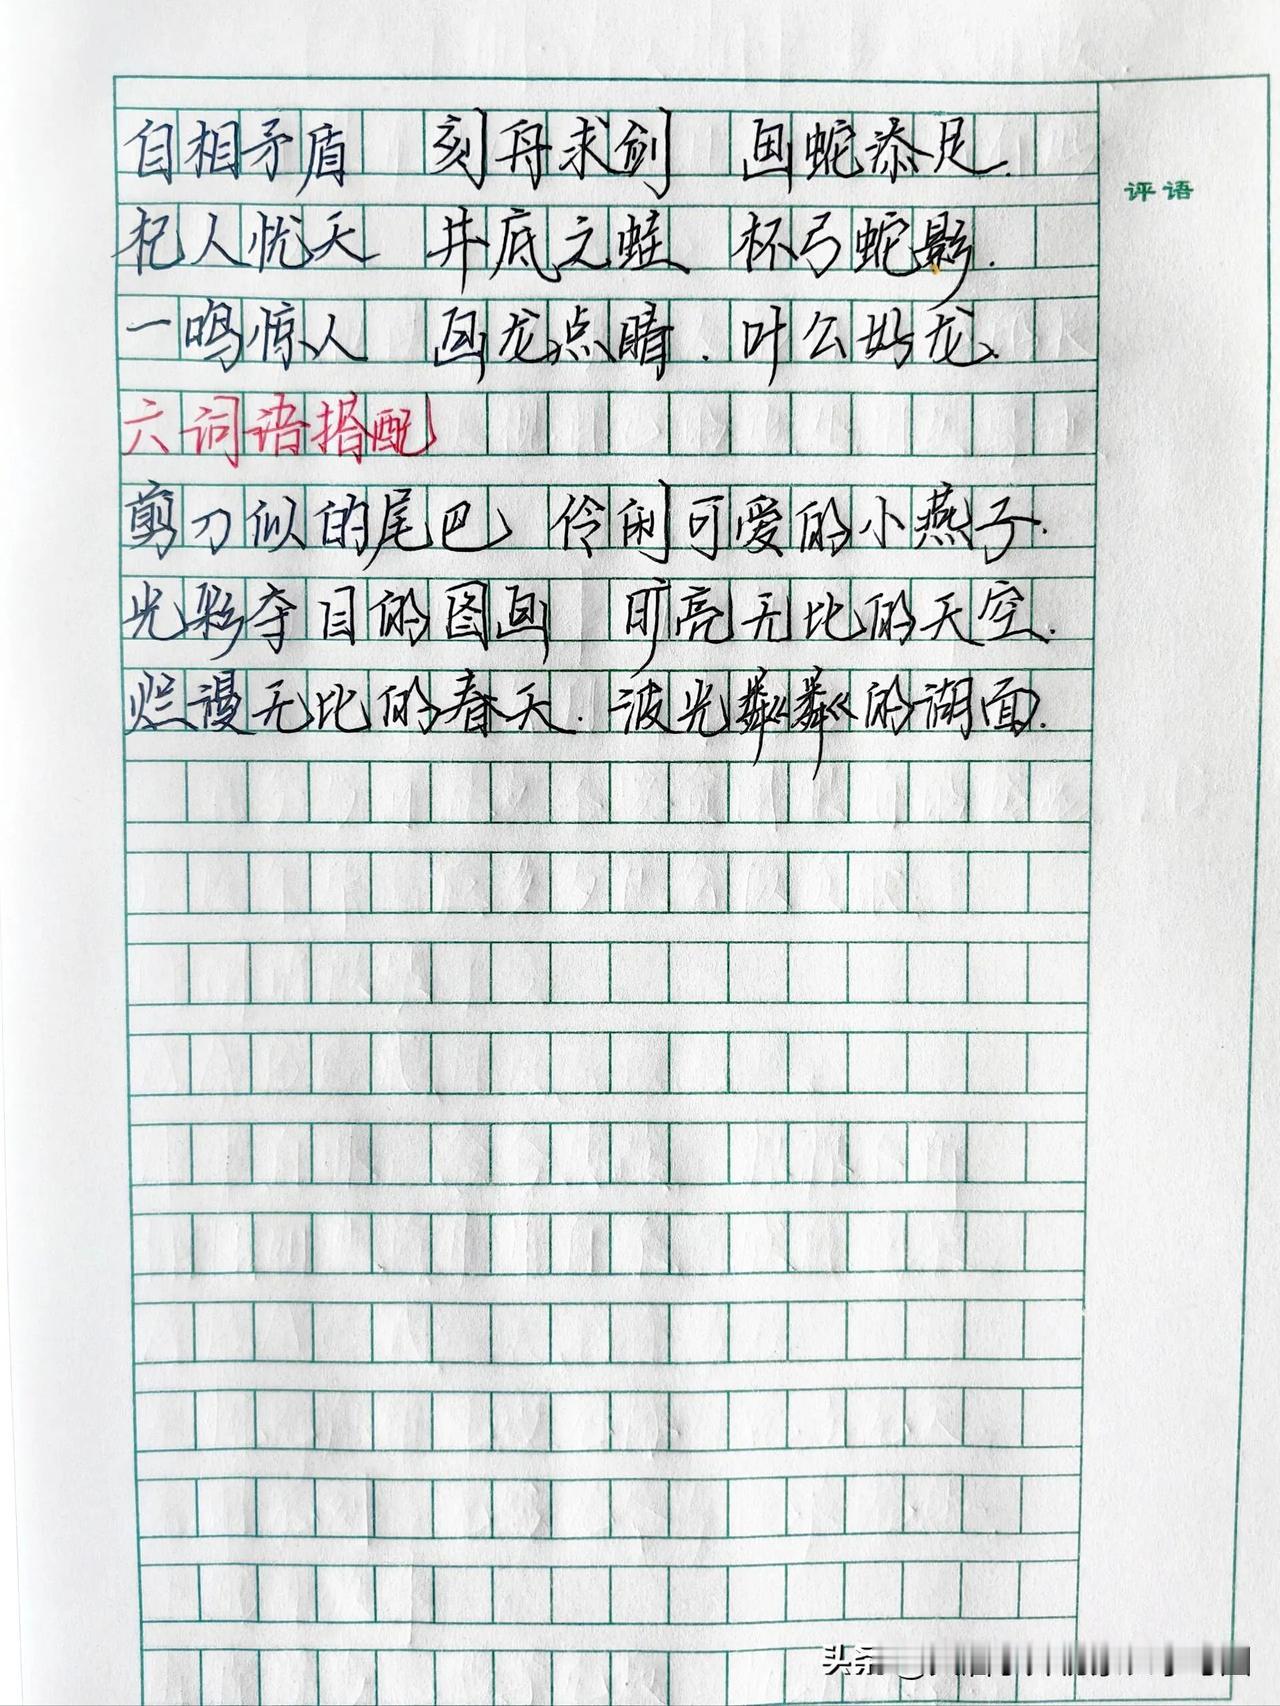 自相矛盾 刻舟求剑 画蛇添足.
杞人忧天 井底之蛙 杯弓蛇影.
一鸣惊人 画龙点睛.叶公好龙.
六词语搭配
剪刀似的尾巴 伶俐可爱的小燕子.
光彩夺目的图画 明亮无比的天空.
烂漫无比的春天.波光粼粼的湖面.
评语
头条